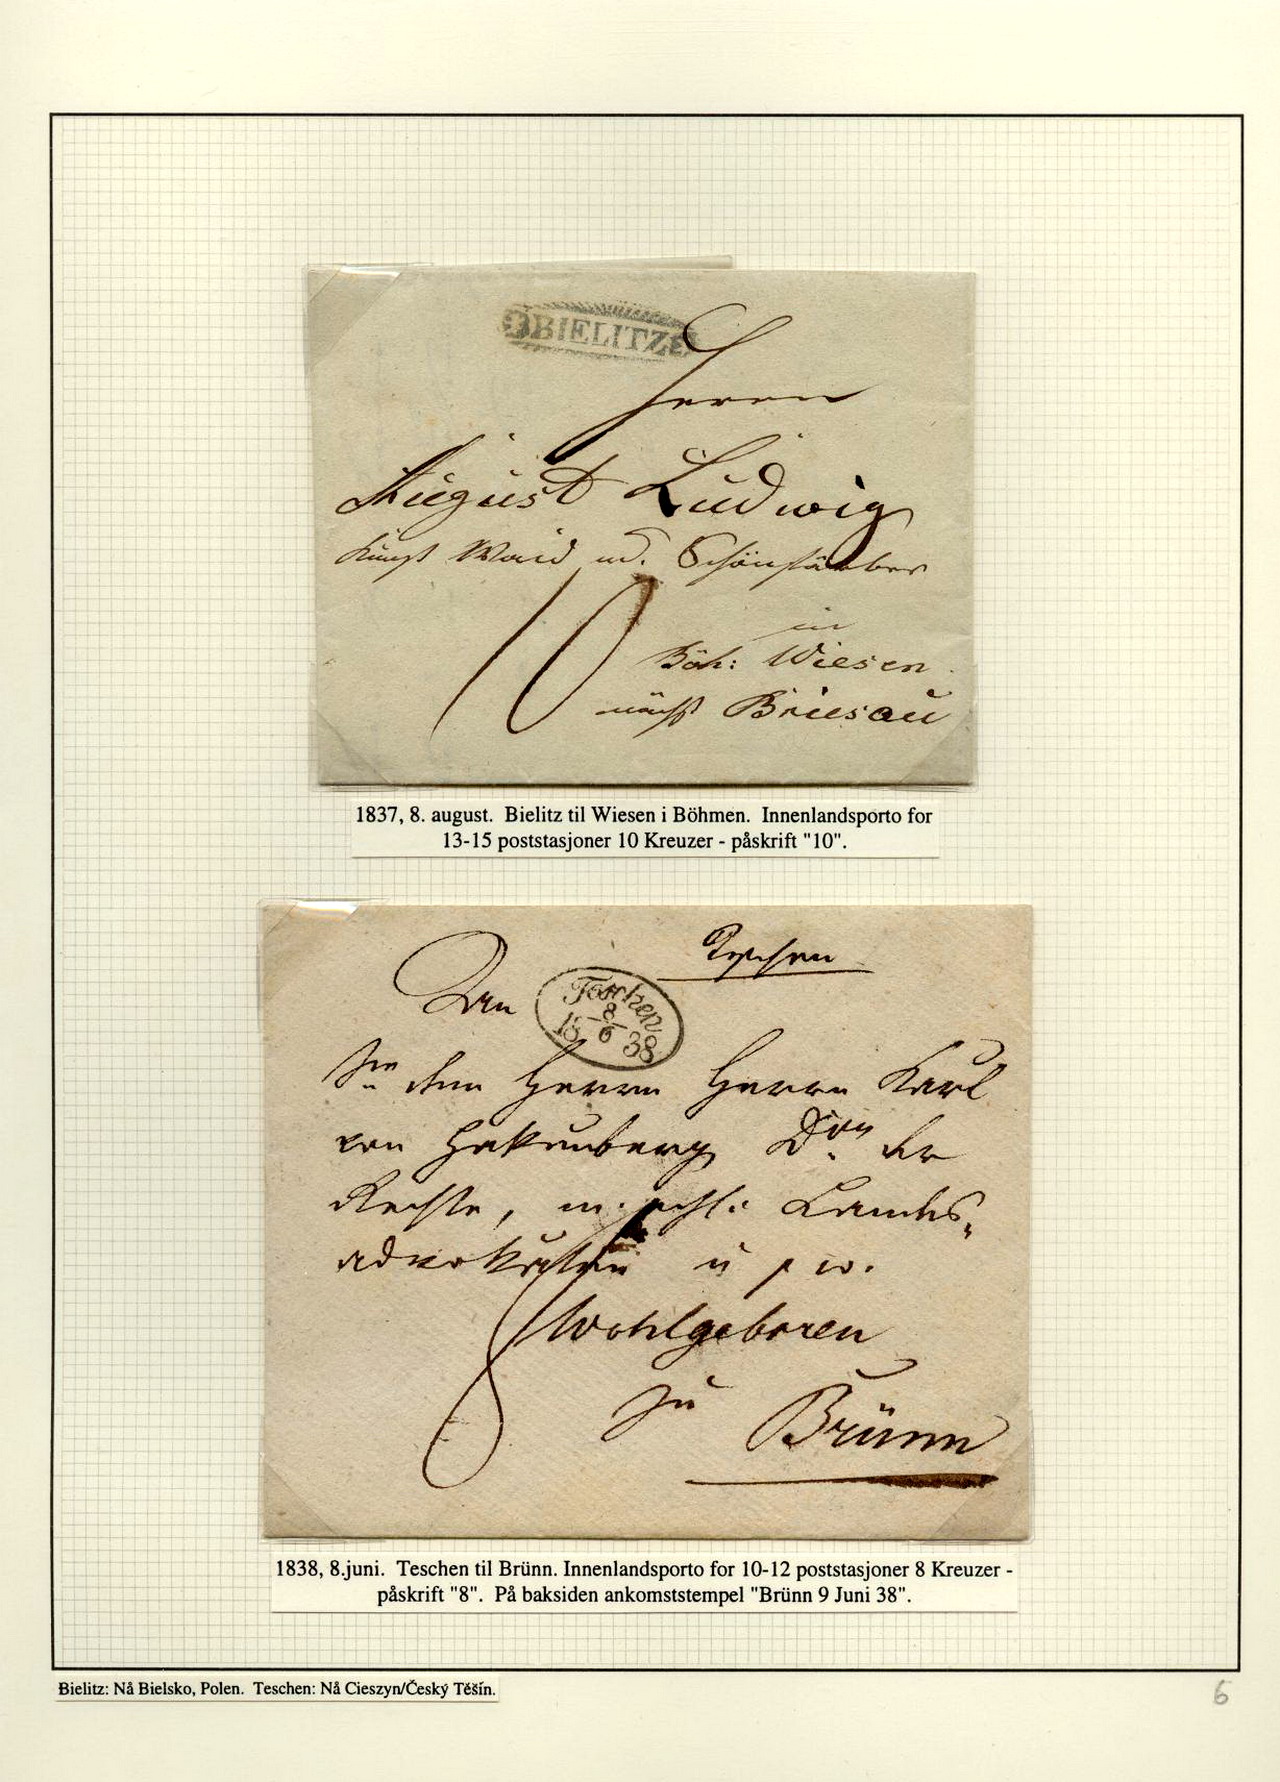 BIELITZ
Herrn
August Ludwig
Kunst Waid und. Schönfärber
in
Böh: Wiesen
nächst Brüsau
10
1837, 8. august. Bielitz til Wiesen i Böhmen. Innenlandsporto for
13-15 poststasjoner 10 Kreuzer - påskrift "10".
Teschen
An
Teschen
8/6
18 38
Sr dem Herrn Herrn Karl
von Hakenberg Dor der
Rechte, m. schl: Landes-
advokaten u s w.
8
Wohlgeboren
zu Brünn
1838, 8.juni. Teschen til Brünn. Innenlandsporto for 10-12 poststasjoner 8 Kreuzer -
påskrift "8". På baksiden ankomststempel "Brünn 9 Juni 38".
Bielitz: Nå Bielsko, Polen. Teschen: Nå Cieszyn/Český Těšín.
6